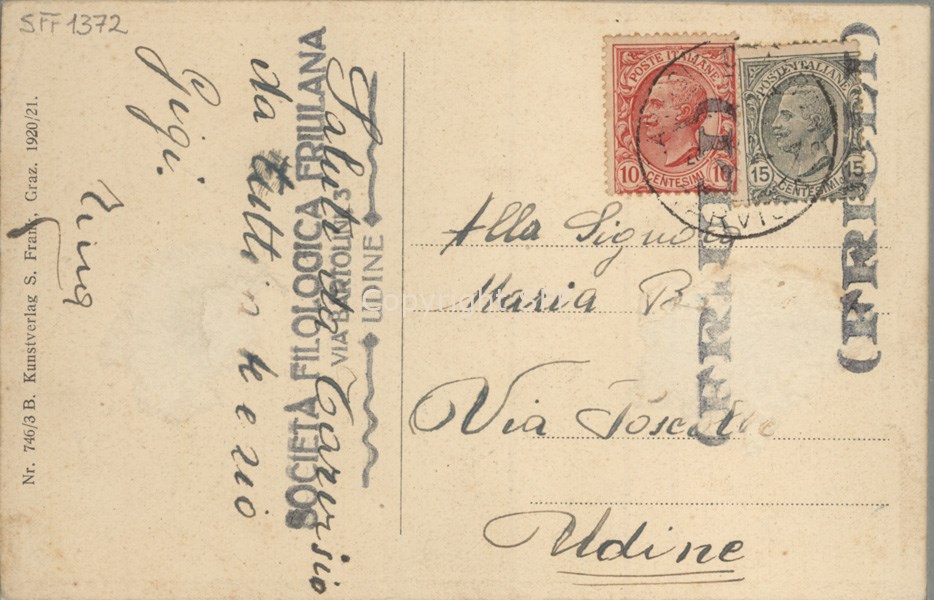 SFF 1372
Nr. 746/3 B. Kunstverlag S. Frank, Graz. 1920/21.
Saluti da Tarvisio
da tutti
Gigi.
SOCIETÀ FILOLOGICA FRIULANA
VIA BARTOLINI, 3
UDINE
POSTE ITALIANE
10 CENTESIMI 10
POSTE ITALIANE
15 CENTESIMI 15
(FRIULI)
(FRIULI)
Alla Signora
Maria B
Via
Udine
Copyright